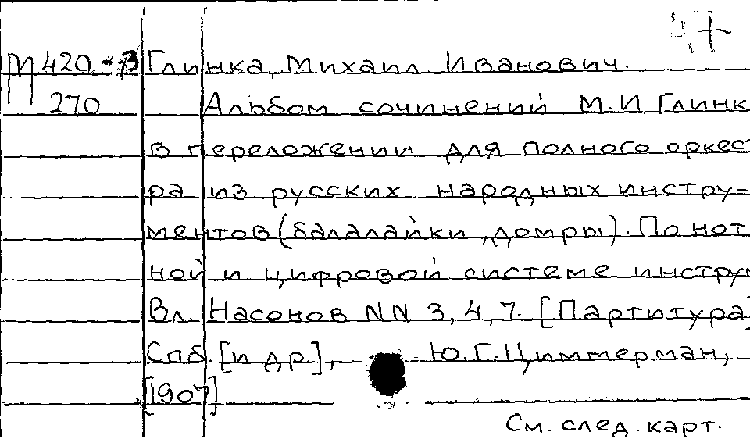 М 420-В Глинка, Михаил Иванович.
270 Альбом сочинений М.И Глинк
в переложении для полного оркес
ра из русских народных инстру-
ментов (балалайки, домры). По нот
ной и цифровой системе инстру
Вл Насонов NN 3, 4, 7. [Партитура
Спб. [и др], Ю.Г. Циммерман,
[1907]
См. след. карт.